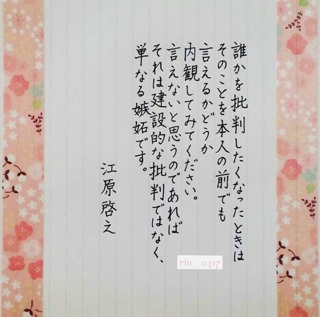 誰かを批判したくなったときは
そのことを本人の前でも
言えるかどうか
内観してみてください。
言えないと思うのであれば
それは建設的な批判ではなく、
単なる嫉妬です。
江原啓之
rin__0417